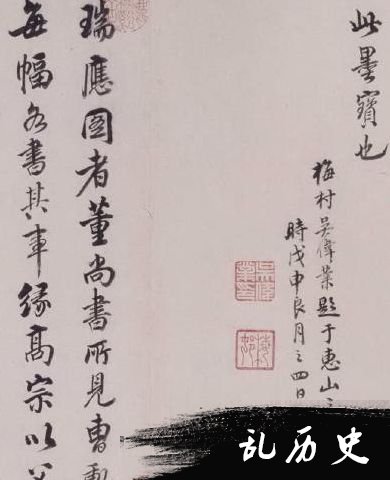 此墨寶也
梅村吳偉業題于惠山
時戊申良月之四日
瑞應圖者董尚書所見曹
每幅各書其事緣高宗以
乱历史